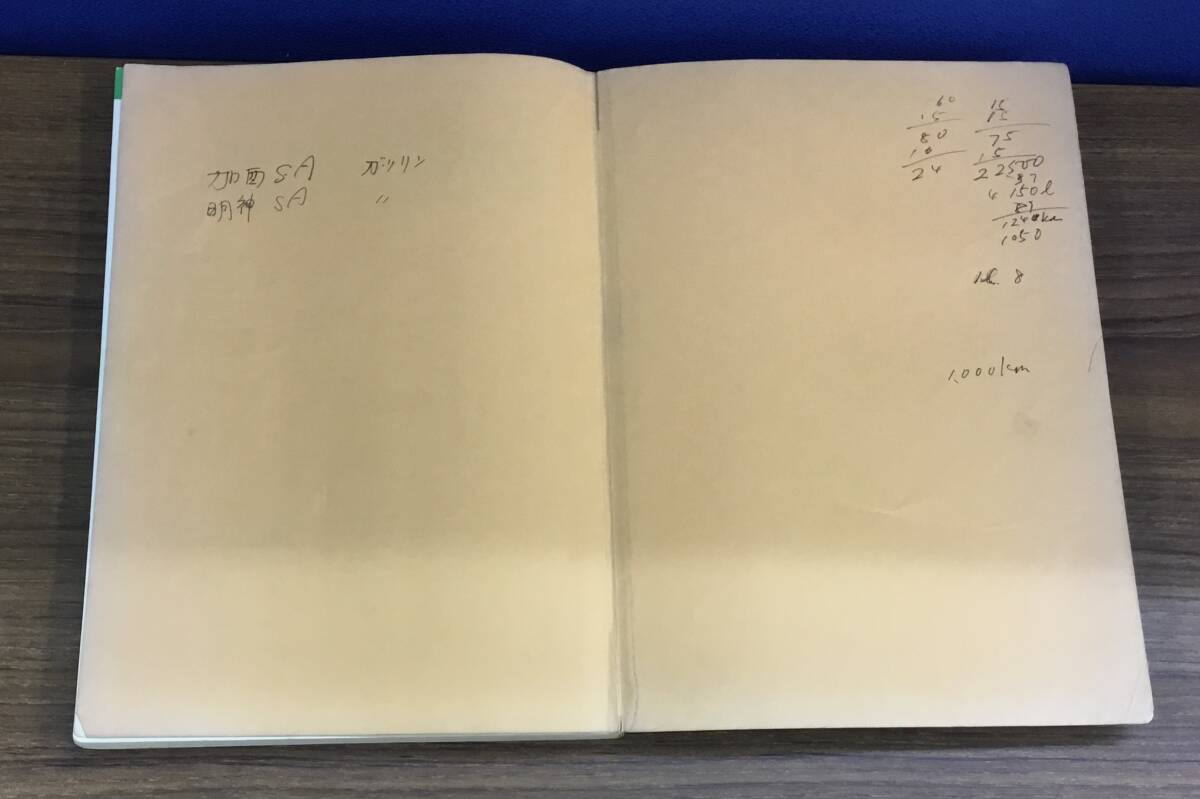 加西SA ガソリン
明神SA 〃
60
15
80
10
24
15
15
75
15
22500
87
4 150l
1240km
1050
8
1,000km